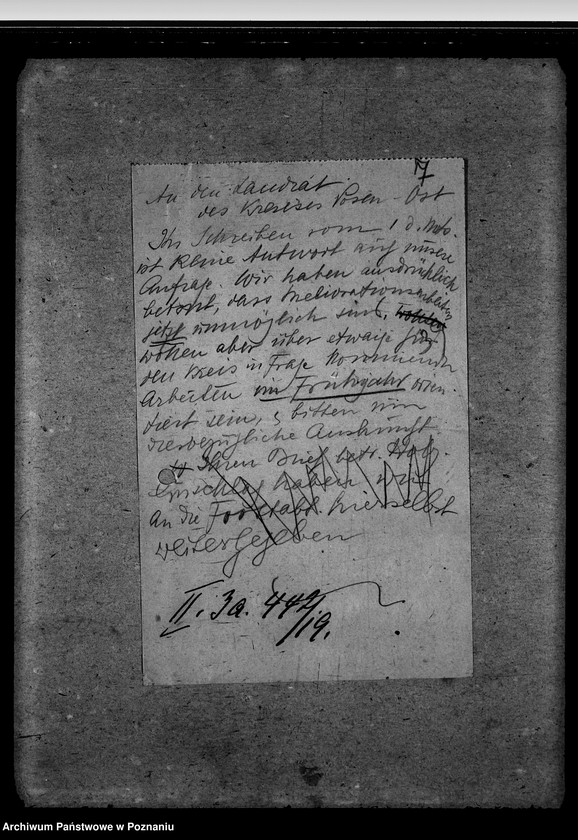 7
An den Landrat
des Kreises Posen-Ost
Ihr Schreiben vom 1 d. Mts.
ist keine Antwort auf unsere
Anfrage. Wir haben ausdrücklich
betont, dass Meliorationsarbeiten
jetzt unmöglich sind,
wollen aber über etwaige für
den Kreis in Frage kommende
Arbeiten im Frühjahr orien-
tiert sein, & bitten um
diesbezügliche Auskunft.
Ihren Brief betr. Holz-
einschlag haben wir
an die Forstabt. hierselbst
weitergegeben
II. 3a. 442/19.
Archiwum Państwowe w Poznaniu